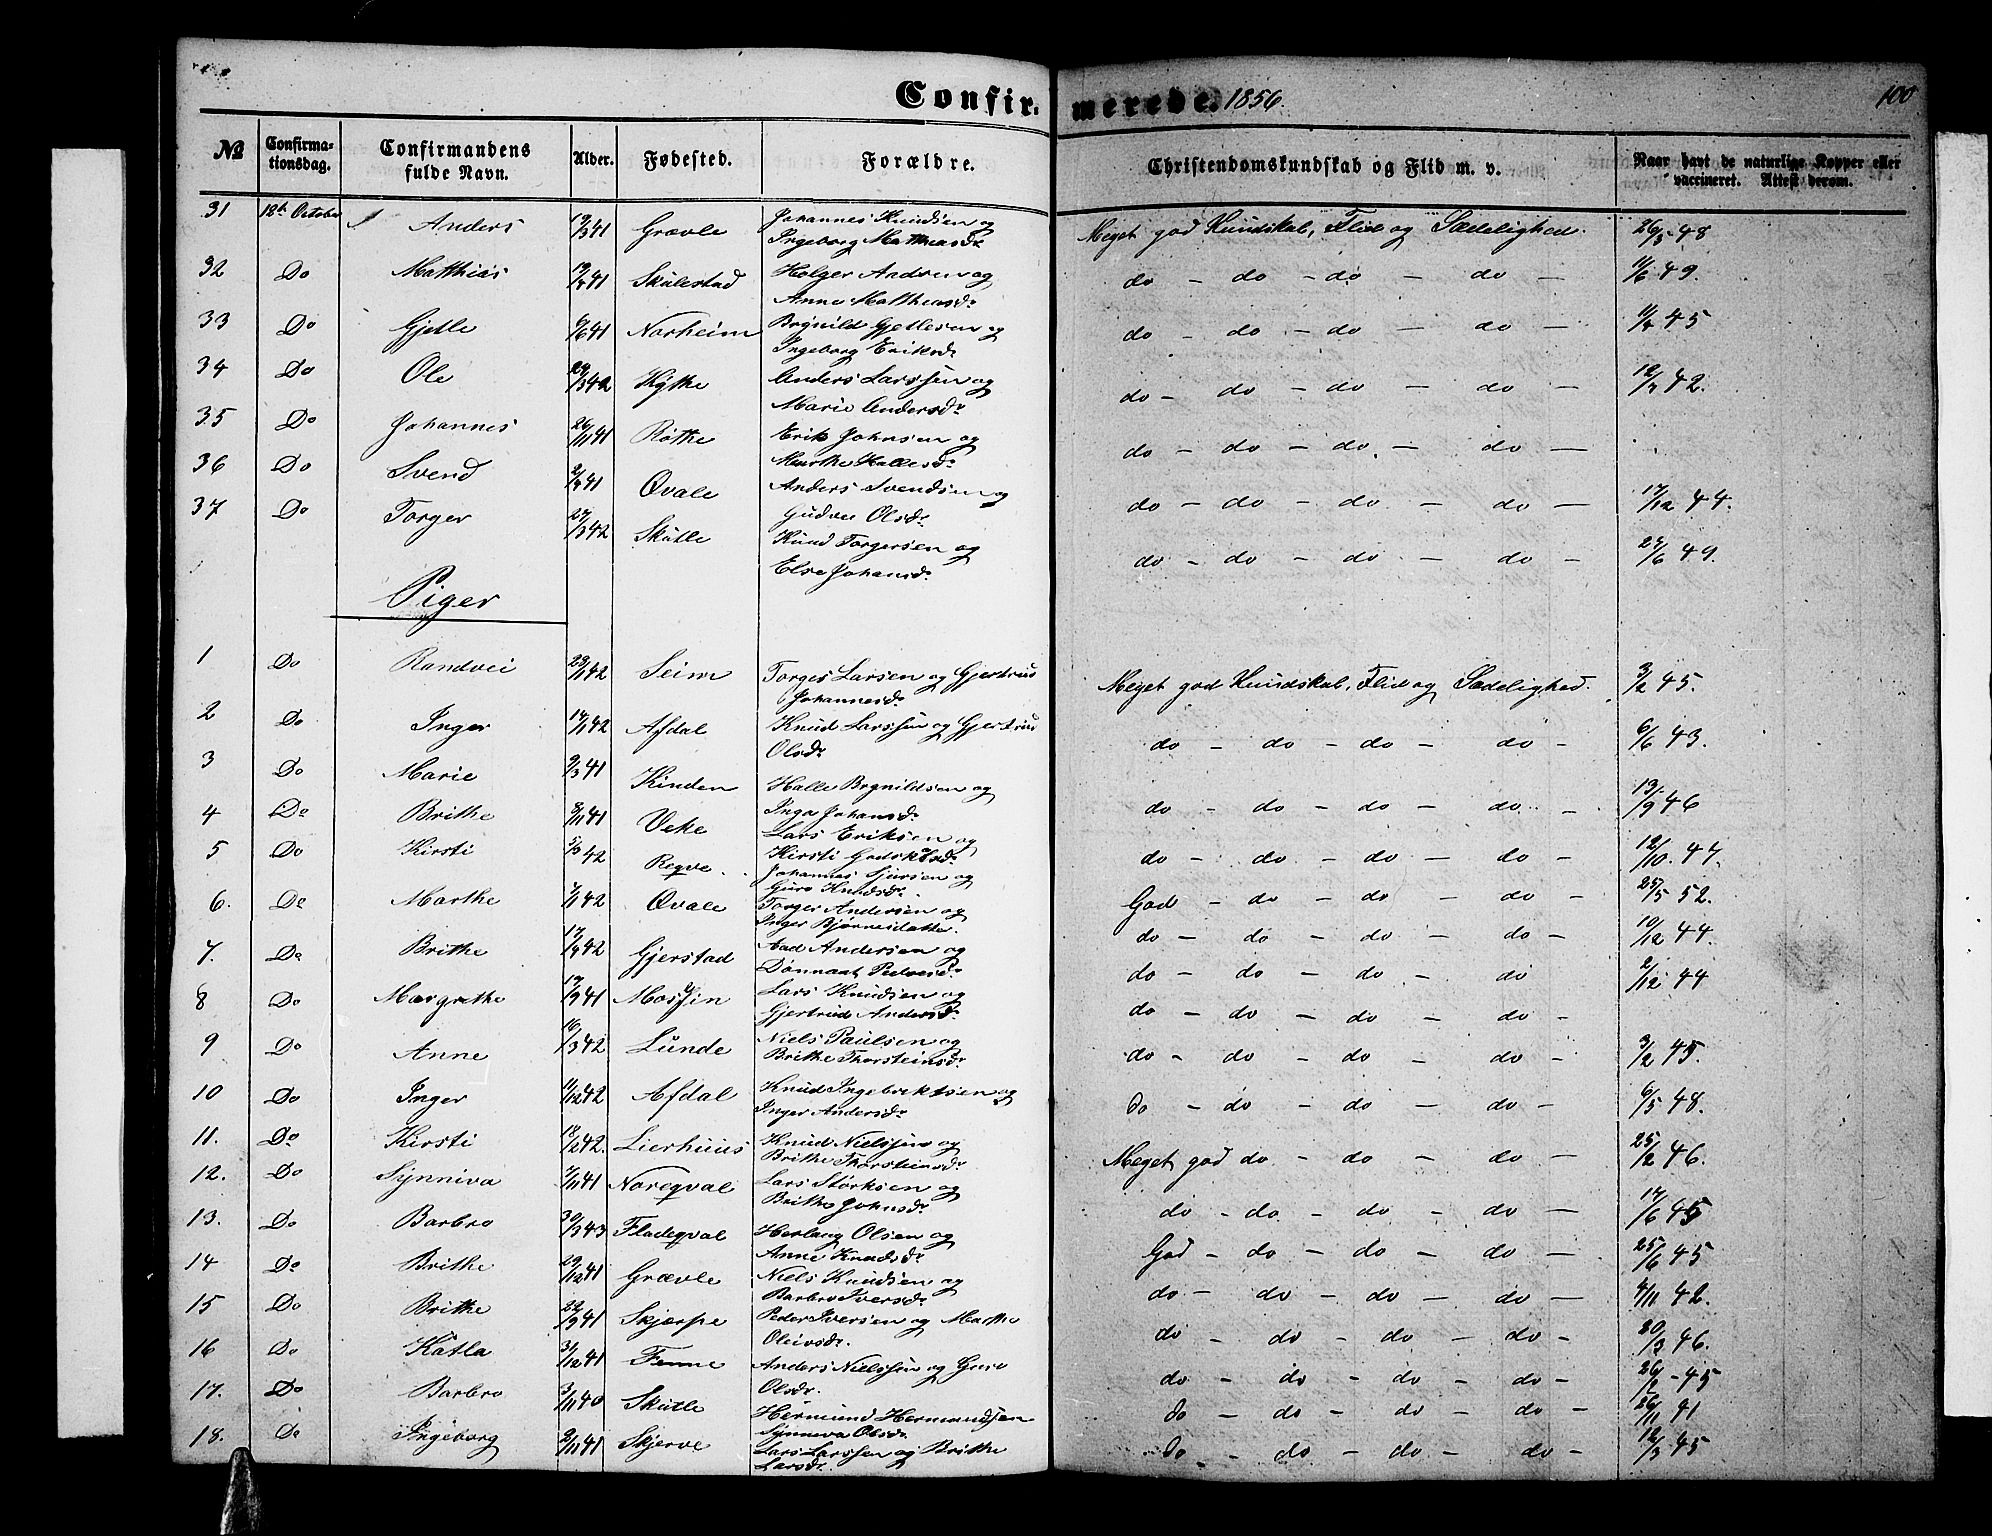 Confirmerede. 1856. 100
№ Confirmationsdag. Confirmandens fulde Navn. Alder. Fødested. Forældre. Christendomskundskab og Flid m. v. Naar havt de naturlige Kopper eller vaccineret. Attest derom.
31 18de October Anders 19/3 41 Grævle Johannes Knudsen og Ingeborg Matthiasdr Meget god Kundskab, Flid og Sædelighed. 26/3 48
32 Do Matthias 19/4 41 Skulestad Holger Andersen og Anne Matthiasdr do - do - do - do - 11/6 49.
33 Do Gjetle 6/6 41 Norheim Brynild Gjetlesen og Ingeborg Eriksdr do - do - do - do - 11/4 45
34 Do Ole 29/3 42 Hythe Anders Larssen og Marie Andersdr do - do - do - do - 12/7 42.
35 Do Johannes 26/11 41 Röthe Erik Johnsen og Marthe Hallesdr do - do - do. - do -
36 Do Svend 2/4 41 Qvale Anders Svendsen og Gudve Olsdr do - do - do - do - 17/12 44.
37 Do Torger 27/3 42 Skutle Knud Torgersen og Else Johansdr do - do - do - do - 24/6 49.
Piger
1 Do Randvei 29/1 42 Seim Torger Larsen og Gjertrud Johannesdr Meget god Kundskab, Flid og Sædelighed. 3/2 45.
2 Do Inger 14/1 42 Afdal Knud Larssen og Gjertrud Olsdr do - do - do - do - 6/6 43.
3 Do Marie 9/3 41 Kinden Halle Brynildsen og Inga Johansdr do - do - do - do. - 13/9 46
4 Do Brithe 8/11 41 Veke Lars Eriksen og Kirsti Godskalsdr do - do - do - do - 12/10 47.
5 Do Kirsti 5/3 42 Reqve. Johannes Sjursen og Guro Knudsdr God - do - do - do - 25/5 52.
6. Do Marthe 7/1 42 Qvale Torger Andersen og Inger Bjørnesdatter do - do - do - do - 10/12 44.
7. Do Brithe 17/4 42 Gjerstad Aad Andersen og Dønnaat Pedersdr do - do - do - do 2/12 44
8 Do Margrethe 19/9 41 Mossfin Lars Knudsen og Gjertrud Andersdr do - do - do - do -
9 Do Anne 16/3 42 Lunde Niels Paulsen og Brithe Thorsteinsdr do - do - do - do - 3/2 45.
10 Do Inger 11/12 42 Afdal Knud Ingebriktsen og Inger Andersdr do - do - do - do - 6/5 48.
11. Do Kirsti 18/2 42. Lierhuus Knud Nielssen og Brithe Thorsteinsdr Meget god do - do - do - 25/2 46.
12. Do Synniva 7/11 41 Noreqval Lars Störksen og Brithe Johnsdr do - do - do - do - 14/6 45
13. Do Barbro 30/3 43 Fladeqval Herlaug Olsen og Anne Knudsdr God - do - do - do - 25/6 45
14 Do Brithe 29/12 41 Grævle Niels Knudsen og Barbro Iversdr do - do - do - do - 4/11 42.
15 Do Brithe 22/9 41 Skjerpe Peder Iversen og Marthe Oleivsdr do - do - do - do - 20/3 46.
16 Do Katla 31/12 41 Fenne Anders Nielssen og Guro Olsdr. do - do - do - do - 26/2 - 45
17. Do Barbro 3/11 40 Skutle Hermund Hermundsen Synneva Olsdr do - do - do - do - 26/11 41
18. Do Ingeborg 2/11 41 Skjerve Lars Larssen og Brithe Larsdr. do - do - do - do - 12/3 45